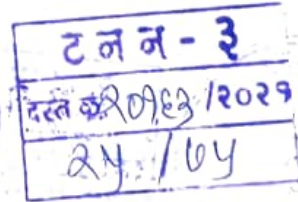 ट न न - ३
दस्त क्र. २०१६३ /२०२१
२५ /७५